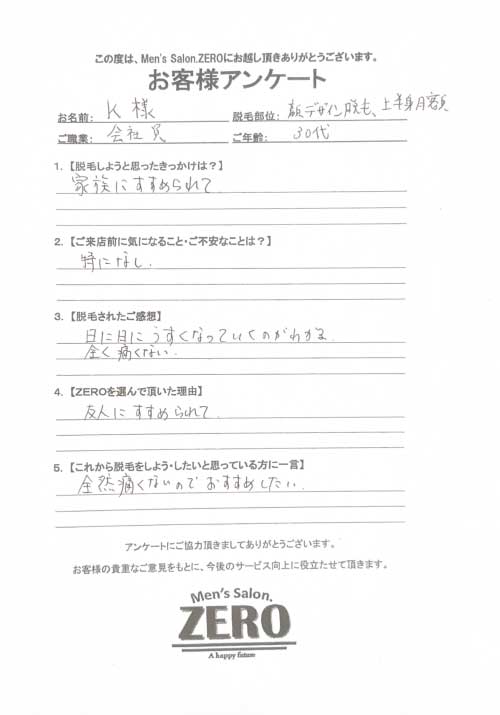 この度は、Men's Salon.ZEROにお越し頂きありがとうございます。
お客様アンケート
お名前: K 様 脱毛部位: 顔デザイン脱毛、上半身月額
ご職業: 会社員 ご年齢: 30代
1. 【脱毛しようと思ったきっかけは？】
家族にすすめられて
2. 【ご来店前に気になること・ご不安なことは？】
特になし.
3. 【脱毛されたご感想】
日に日にうすくなっていくのがわかる.
全く痛くない.
4. 【ZEROを選んで頂いた理由】
友人にすすめられて.
5. 【これから脱毛をしよう・したいと思っている方に一言】
全然痛くないのでおすすめしたい.
アンケートにご協力頂きましてありがとうございます。
お客様の貴重なご意見をもとに、今後のサービス向上に役立たせて頂きます。
Men's Salon.
ZERO
A happy future